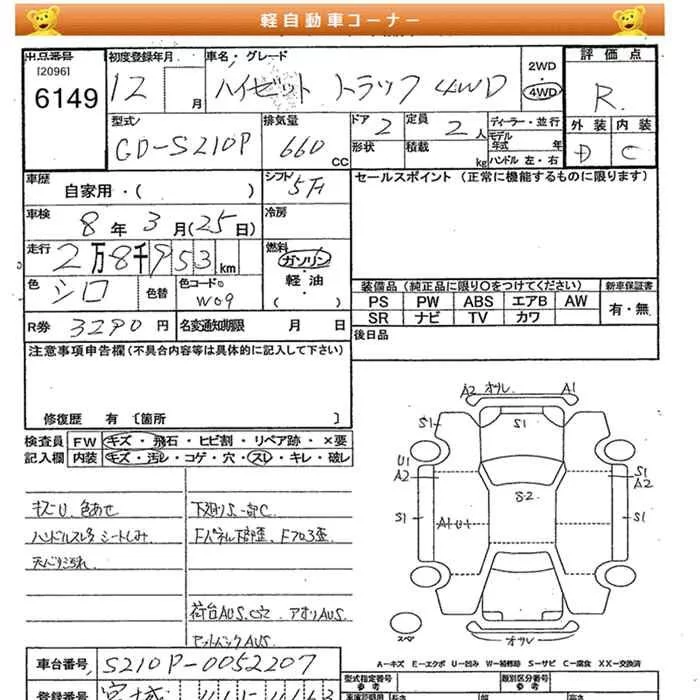 軽自動車コーナー
出品番号
[2096]
6149
初度登録年月
12
月
車名・グレード
ハイゼット トラック 4WD
2WD
・
4WD
評価点
R
外装 内装
D C
型式
GD-S210P
排気量
660
CC
ドア
2
形状
定員
2 人
積載
kg
ディーラー・並行
モデル
年式 年
ハンドル 左・右
車歴
自家用・( )
シフト
5F
セールスポイント (正常に機能するものに限ります)
車検
8 年 3 月(25 日)
冷房
走行
2 万 8 千 9 5 3 km
燃料
ガソリン
・
軽 油
( )
色
シロ
色替
色コードNo
W09
装備品 (純正品に限り○をつけてください)
PS PW ABS エアB AW
SR ナビ TV カワ
新車保証書
有・無
R券 3290 円
名変通知期限 月 日
後日品
注意事項申告欄 (不具合内容等は具体的に記入して下さい)
修復歴 有 〔箇所 〕
検査員
記入欄
FW キズ・飛石・ヒビ割・リペア跡・×要
内装 キズ・汚レ・コゲ・穴・スレ・キレ・破レ
キズU 色あせ
ハンドルスレ多 シートしみ
天バリ汚れ
下廻りS 一部C
Fパネル下部歪、Fクロス歪
荷台AUS、C穴 アオリAUS
A2 オサレ A1
S1
S1
U1
A2
S1
A2
S2
S1
A1U1
S1
スペ
オサレ
A-キズ E-エクボ U-凹み W-補修跡 S-サビ C-腐食 XX-交換済
車台番号
S210P-0052207
型式指定番号
参考
類別区分番号
参考
登録番号
宮城
長さ
幅
高さ